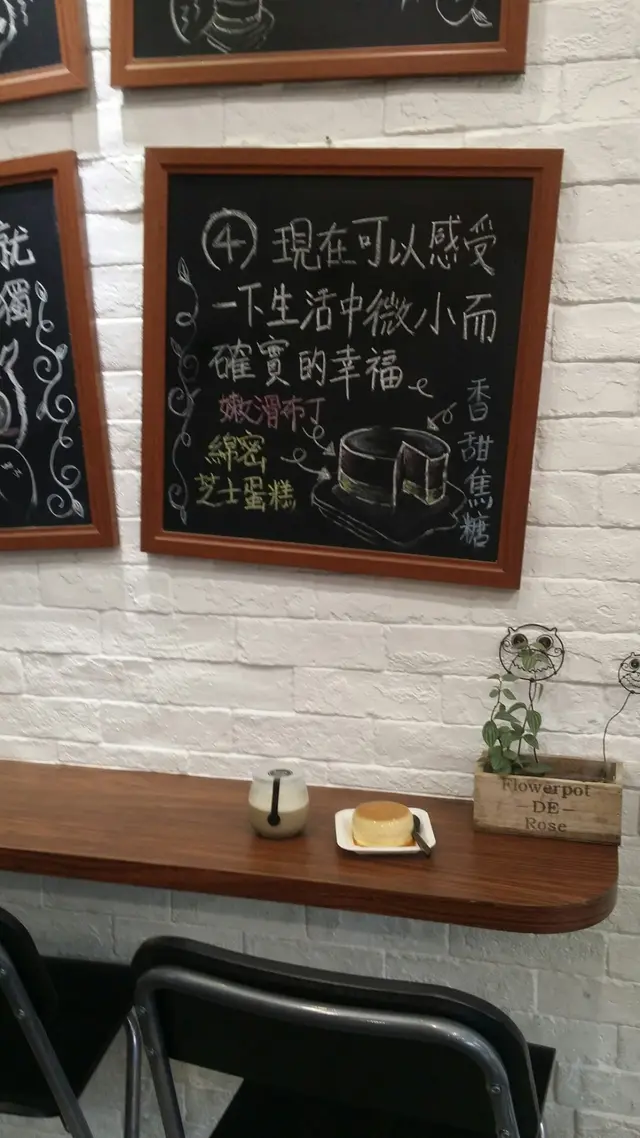 就
獨
④ 現在可以感受
一下生活中微小而
確實的幸福
嫩滑布丁
綿密
芝士蛋糕
香甜焦糖
Flowerpot
-DE-
Rose